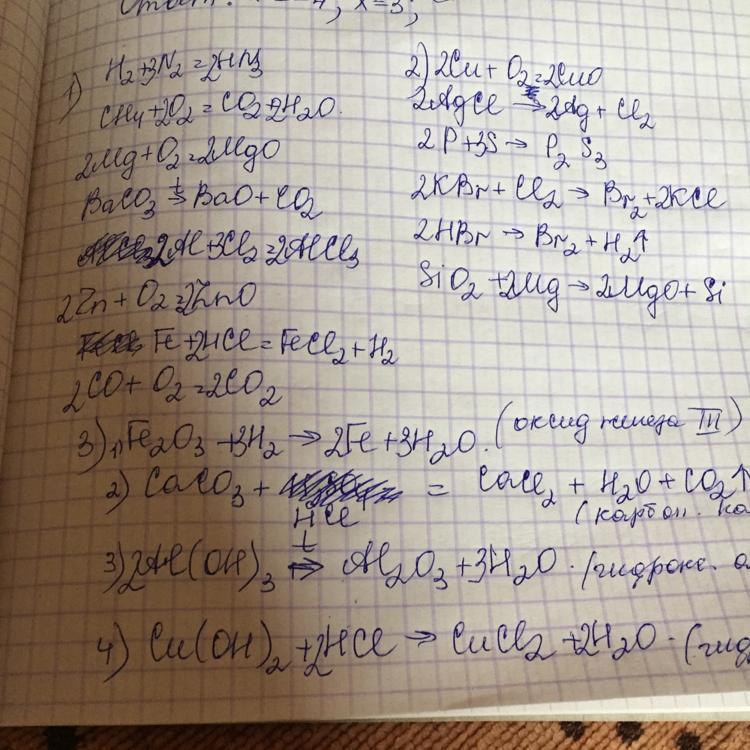 1) H₂+3N₂=2HN₃
CH₄+2O₂=CO₂+2H₂O.
2Mg+O₂=2MgO
BaCO₃ t→ BaO+CO₂
2Al+3Cl₂=2AlCl₃
2Zn+O₂=2ZnO
Fe+2HCl=FeCl₂+H₂
2CO+O₂=2CO₂
2) 2Cu+O₂=2CuO
2AgCl→2Ag+Cl₂
2P+3S→P₂S₃
2KBr+Cl₂→Br₂+2KCl
2HBr→Br₂+H₂↑
SiO₂+2Mg→2MgO+Si
3) 1) Fe₂O₃+3H₂→2Fe+3H₂O. (оксид железа III)
2) CaCO₃+ HCl = CaCl₂+H₂O+CO₂↑
(карбон. ка
3) 2Al(OH)₃ t→ Al₂O₃+3H₂O. (гидрокс. а
4) Cu(OH)₂+2HCl→CuCl₂+2H₂O. (гид